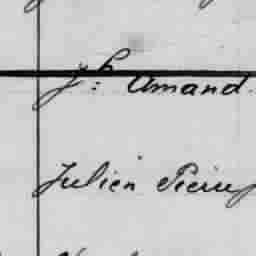 jh: Amand.
Julien Pierre